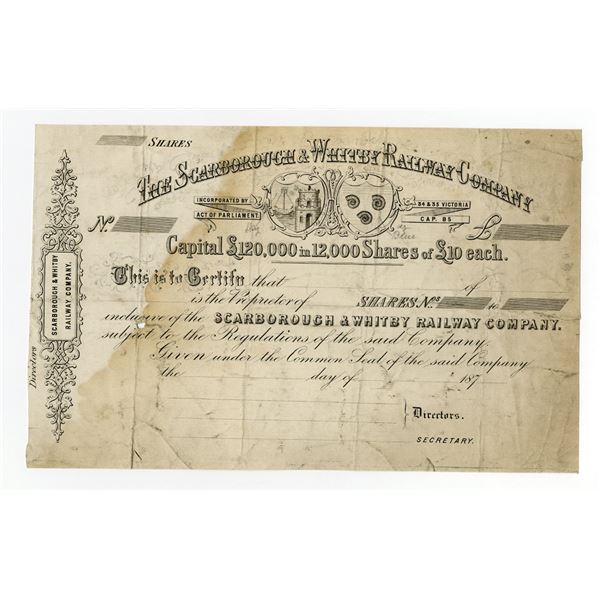 SHARES
THE SCARBOROUGH & WHITBY RAILWAY COMPANY
INCORPORATED BY
ACT OF PARLIAMENT.
34 & 35 VICTORIA
CAP. 85
No.
£
Capital £120,000 in 12,000 Shares of £10 each.
This is to Certify that of
is the Proprietor of SHARES Nos. to
inclusive of the SCARBOROUGH & WHITBY RAILWAY COMPANY.
subject to the Regulations of the said Company.
Given under the Common Seal of the said Company
the day of 187
Directors.
SECRETARY.
Directors
SCARBOROUGH & WHITBY
RAILWAY COMPANY.